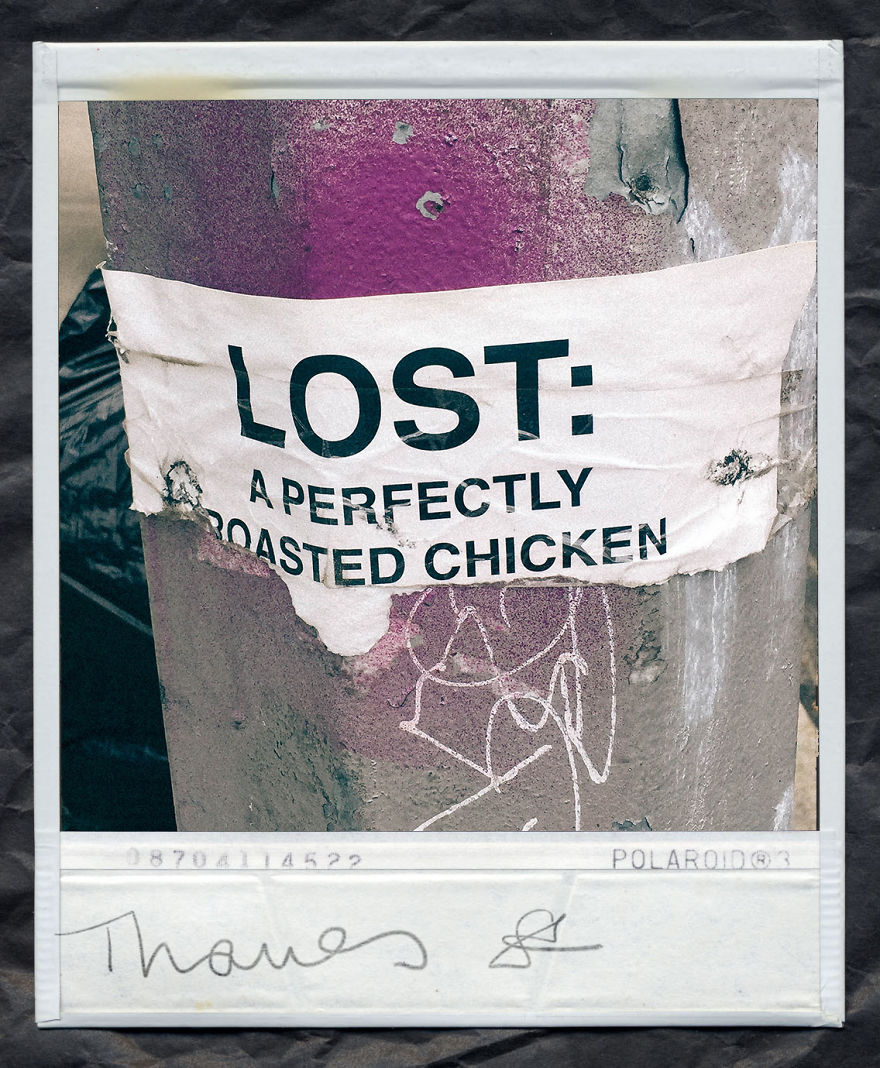 LOST:
A PERFECTLY
ROASTED CHICKEN
08704114522 POLAROID®3
Thames St